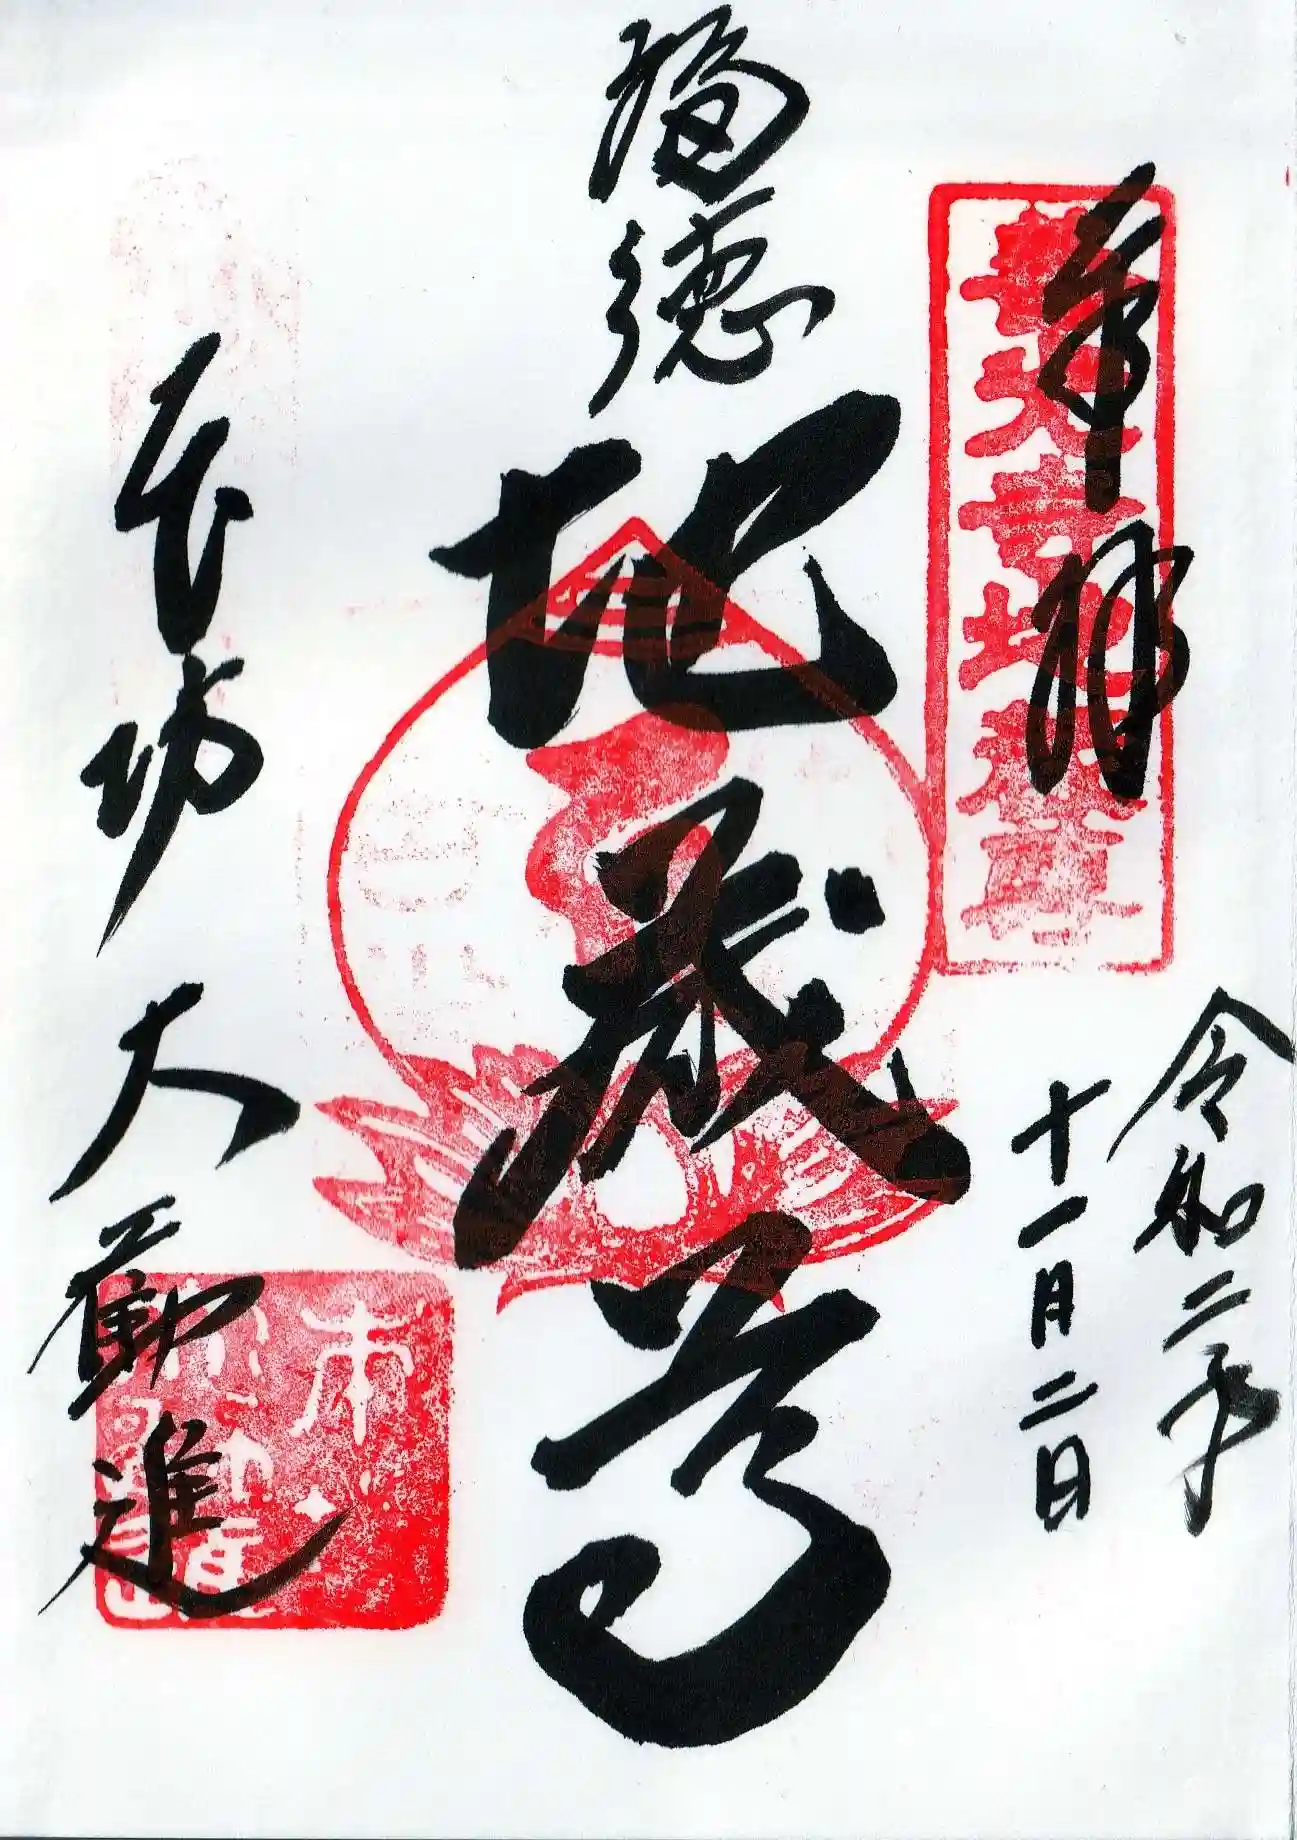 奉拝
令和二年
十一月二日
福徳
地蔵尊
本坊 大勧進